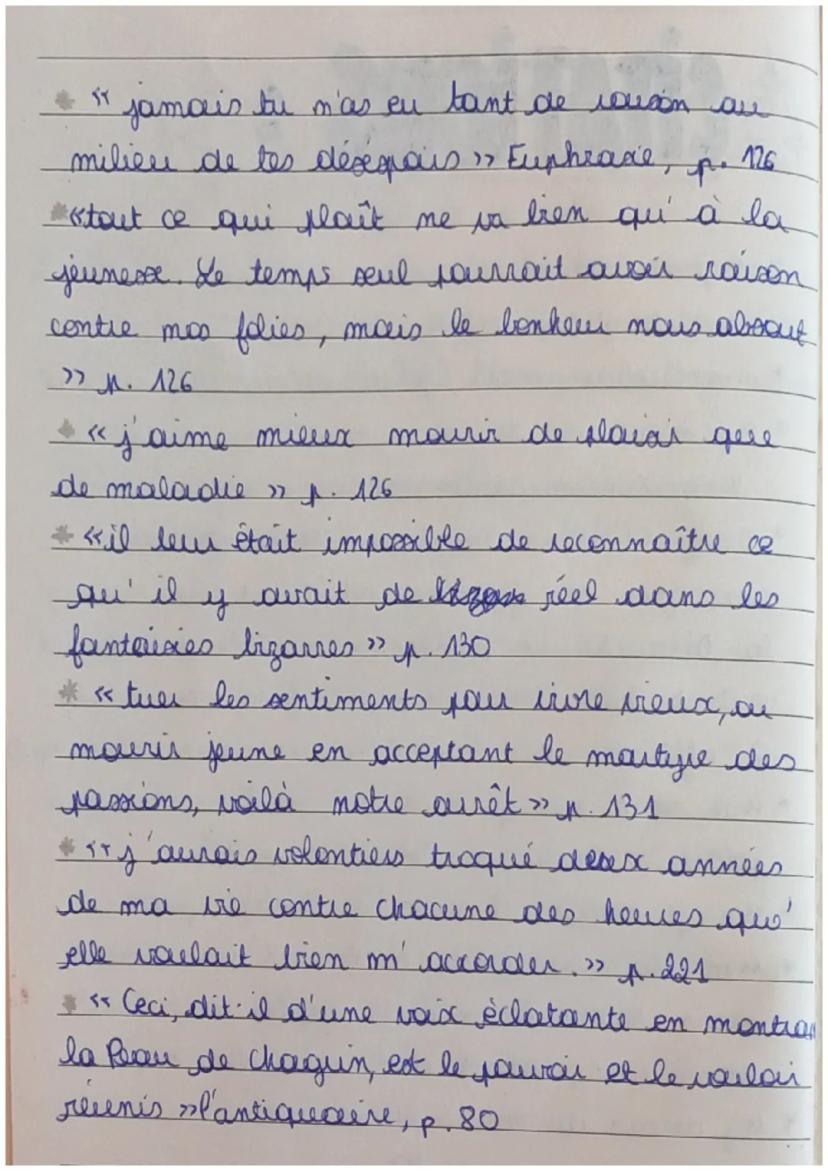 * « jamais tu n'as eu tant de raison au
milieu de tes désespoirs » Euphrasie, p. 126
* « tout ce qui plaît ne va bien qu'à la
jeunesse. Le temps seul pourrait avoir raison
contre mos folies, mais le bonheur nous absout
» p. 126
* « j'aime mieux mourir de plaisir que
de maladie » p. 126
* « il leur était impossible de reconnaître ce
qu'il y avait de réel dans les
fantaisies bizarres » p. 130
* « tuer les sentiments pour vivre vieux, ou
mourir jeune en acceptant le martyre des
passions, voilà notre arrêt » p. 131
* « j'aurais volontiers troqué deux années
de ma vie contre chacune des heures qu'
elle voulait bien m'accorder. » p. 221
* « Ceci, dit-il d'une voix èclatante en montran
la Peau de chagrin, est le pouvoir et le vouloir
réunis » l'antiquaire, p. 80